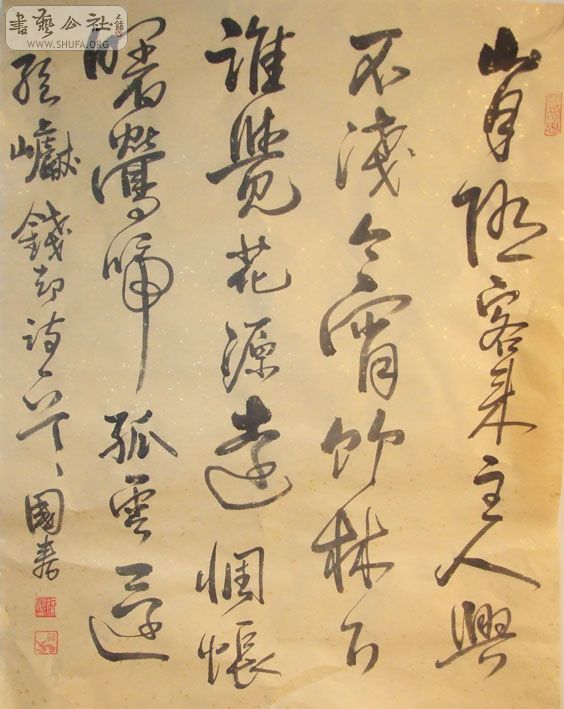 書藝公社
WWW.SHUFA.ORG
山月随客来主人興
不淺今宵竹林下
誰覺花源遠惆悵
曙鶯啼孤雲還
絕巘錢起詩一首國壽